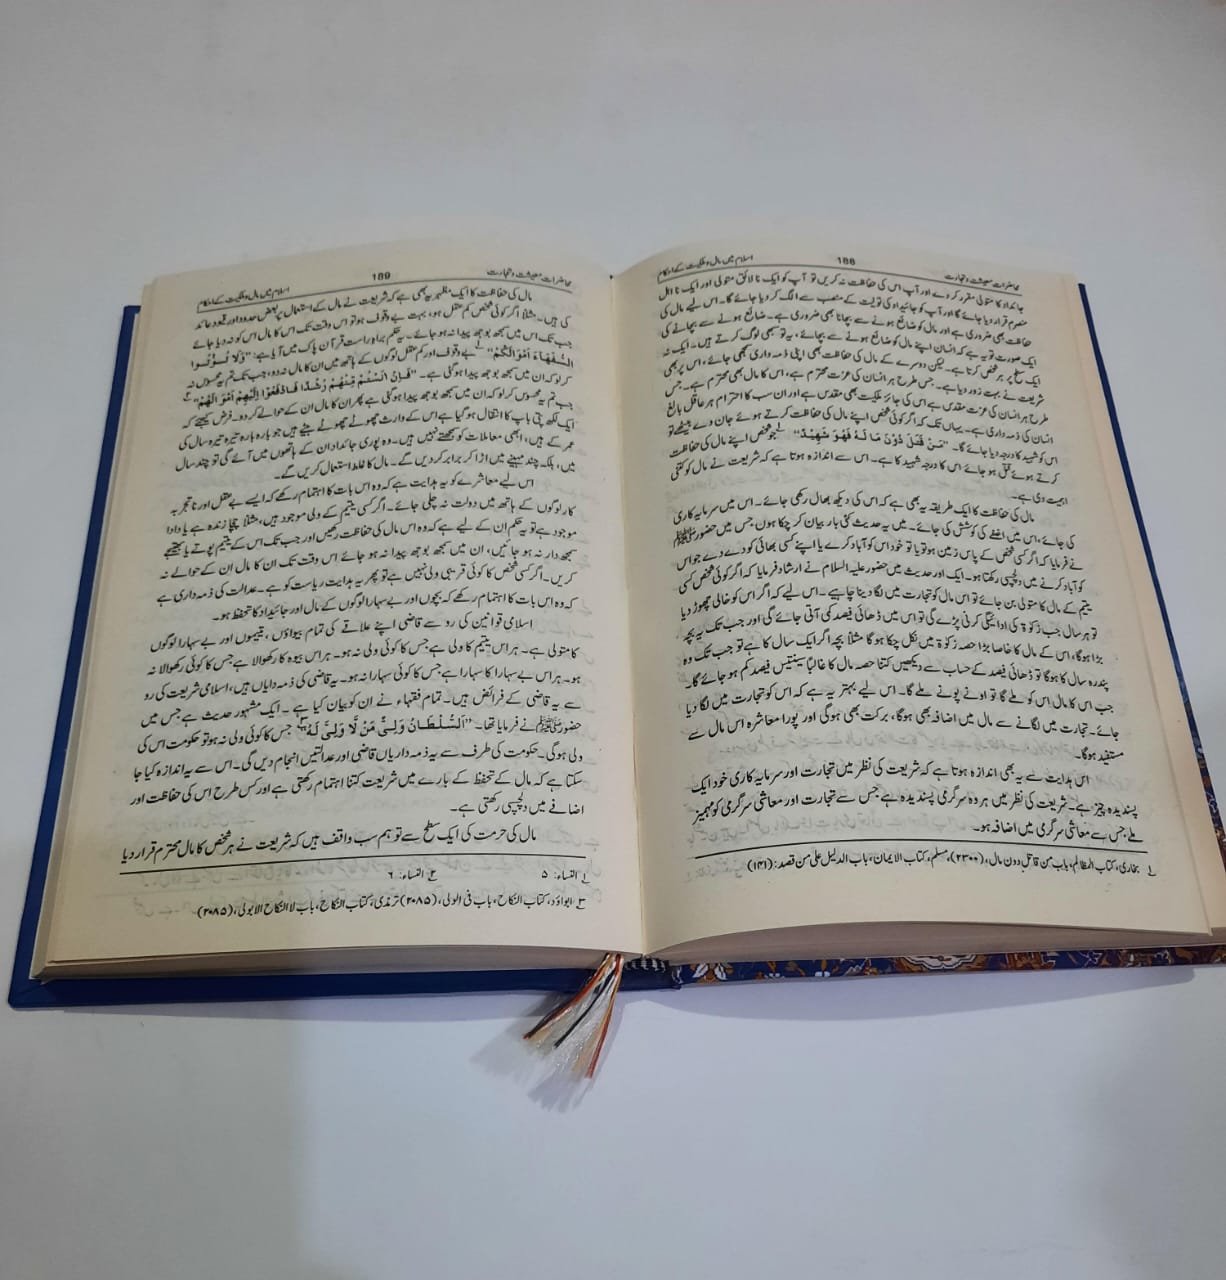 محاضرات معیشت و تجارت 188 اسلام میں مال و ملکیت کے احکام
جائداد کا متولی مقرر کر دے اور آپ اس کی حفاظت نہ کریں تو آپ کو ایک نالائق متولی اور ایک نا اہل
منصرم قرار دیا جائے گا اور آپ کو جائیداد کی تولیت کے منصب سے الگ کر دیا جائے گا۔ اس لیے مال کی
حفاظت بھی ضروری ہے اور مال کو ضائع ہونے سے بچانا بھی ضروری ہے۔ ضائع ہونے سے بچانے کی
ایک صورت تو یہ ہے کہ انسان اپنے مال کو ضائع ہونے سے بچائے، یہ تو سبھی لوگ کرتے ہیں۔ ایک نہ
ایک سطح پر ہر شخص کرتا ہے۔ لیکن دوسرے کے مال کی حفاظت بھی اپنی ذمہ داری سمجھی جائے، اس پر بھی
شریعت نے بہت زور دیا ہے۔ جس طرح ہر انسان کی عزت محترم ہے، اس کا مال بھی محترم ہے۔ جس
طرح ہر انسان کی عزت مقدس ہے اس کی جائز ملکیت بھی مقدس ہے اور ان سب کا احترام ہر عاقل بالغ
انسان کی ذمہ داری ہے۔ یہاں تک کہ اگر کوئی شخص اپنے مال کی حفاظت کرتے ہوئے جان دے بیٹھے تو
اس کو شہید کا درجہ دیا جائے گا۔ ”مَنْ قُتِلَ دُوْنَ مَا لَہٗ فَھُوَ شَھِیْدٌ“ ۱؎ جو شخص اپنے مال کی حفاظت
کرتے ہوئے قتل ہو جائے اس کا درجہ شہید کا ہے۔ اس سے اندازہ ہوتا ہے کہ شریعت نے مال کو کتنی
اہمیت دی ہے۔
مال کی حفاظت کا ایک طریقہ یہ بھی ہے کہ اس کی دیکھ بھال رکھی جائے۔ اس میں سرمایہ کاری
کی جائے، اس میں اضافے کی کوشش کی جائے۔ میں یہ حدیث کئی بار بیان کر چکا ہوں جس میں حضور ﷺ
نے فرمایا کہ اگر کسی شخص کے پاس زمین ہو تو یا تو خود اس کو آباد کرے یا اپنے کسی بھائی کو دے دے جو اس
کو آباد کرنے میں دلچسپی رکھتا ہو۔ ایک اور حدیث میں حضور علیہ السلام نے ارشاد فرمایا کہ اگر کوئی شخص کسی
یتیم کے مال کا متولی بن جائے تو اس مال کو تجارت میں لگا دینا چاہیے۔ اس لیے کہ اگر اس کو خالی چھوڑ دیا
تو ہر سال جب زکوٰۃ کی ادائیگی کرنی پڑے گی تو اس میں ڈھائی فیصد کمی آتی جائے گی اور جب تک یہ بچہ
بڑا ہوگا، اس کے مال کا خاصا بڑا حصہ زکوٰۃ میں نکل چکا ہوگا مثلاً بچہ اگر ایک سال کا ہے تو جب تک وہ
پندرہ سال کا ہوگا تو ڈھائی فیصد کے حساب سے دیکھیں کتنا حصہ مال کا غالباً سینتیس فیصد کم ہو جائے گا۔
جب اس کا مال اس کو ملے گا تو اونے پونے ملے گا۔ اس لیے بہتر یہ ہے کہ اس کو تجارت میں لگا دیا
جائے۔ تجارت میں لگانے سے مال میں اضافہ بھی ہوگا، برکت بھی ہوگی اور پورا معاشرہ اس مال سے
مستفید ہوگا۔
اس ہدایت سے یہ بھی اندازہ ہوتا ہے کہ شریعت کی نظر میں تجارت اور سرمایہ کاری خود ایک
پسندیدہ چیز ہے۔ شریعت کی نظر میں ہر وہ سرگرمی پسندیدہ ہے جس سے تجارت اور معاشی سرگرمی کو مہمیز
ملے جس سے معاشی سرگرمی میں اضافہ ہو۔
۱؎ بخاری، کتاب المظالم، باب من قاتل دون مالہ، (۲۳۰۰)، مسلم، کتاب الایمان، باب الدلیل علیٰ من قصد: (۱۴۱)
محاضرات معیشت و تجارت 189 اسلام میں مال و ملکیت کے احکام
مال کی حفاظت کا ایک مظہر یہ بھی ہے کہ شریعت نے مال کے استعمال پر بعض حدود اور قیود عائد
کی ہیں۔ مثلاً اگر کوئی شخص کم عقل ہو، بہت بے وقوف ہو تو اس وقت تک اس کا مال اس کو نہ دیا جائے
جب تک اس میں سمجھ بوجھ پیدا نہ ہو جائے۔ یہ حکم براہ راست قرآن پاک میں آیا ہے: ”وَلَا تُـؤْتُـوا
السُّفَهَآءَ اَمْوَالَكُمْ“ ۱؎ بے وقوف اور کم عقل لوگوں کے ہاتھ میں ان کا مال نہ دو، جب تک تم یہ محسوس نہ
کر لو کہ ان میں سمجھ بوجھ پیدا ہو گئی ہے۔ ”فَـاِنْ اٰنَسْتُمْ مِّنْھُمْ رُشْدًا فَادْفَعُوْا اِلَیْھِمْ اَمْوَالَھُمْ“ ۲؎
جب تم یہ محسوس کر لو کہ ان میں سمجھ بوجھ پیدا ہو گئی ہے پھر ان کا مال ان کے حوالے کر دو۔ فرض کیجئے کہ
ایک لکھ پتی باپ کا انتقال ہو گیا ہے اس کے وارث چھوٹے چھوٹے بچے ہیں جو بارہ بارہ تیرہ تیرہ سال کی
عمر کے ہیں، ابھی معاملات کو سمجھتے نہیں ہیں۔ وہ پوری جائداد ان کے ہاتھوں میں آئے گی تو چند سال
میں، بلکہ چند مہینے میں اڑا کر برابر کر دیں گے۔ مال کا غلط استعمال کریں گے۔
اس لیے معاشرے کو یہ ہدایت ہے کہ وہ اس بات کا اہتمام رکھے کہ ایسے بے عقل اور نا تجربہ
کار لوگوں کے ہاتھ میں دولت نہ چلی جائے۔ اگر کسی یتیم کے ولی موجود ہیں، مثلاً چچا زندہ ہے یا دادا
موجود ہے تو یہ حکم ان کے لیے ہے کہ وہ اس مال کی حفاظت رکھیں اور جب تک اس کے یتیم پوتے یا بھتیجے
سمجھ دار نہ ہو جائیں، ان میں سمجھ بوجھ پیدا نہ ہو جائے اس وقت تک ان کا مال ان کے حوالے نہ
کریں۔ اگر کسی شخص کا کوئی قریبی ولی نہیں ہے تو پھر یہ ہدایت ریاست کو ہے۔ عدالت کی ذمہ داری ہے
کہ وہ اس بات کا اہتمام رکھے کہ بچوں اور بے سہارا لوگوں کے مال اور جائیداد کا تحفظ ہو۔
اسلامی قوانین کی رو سے قاضی اپنے علاقے کی تمام بیواؤں، یتیموں اور بے سہارا لوگوں
کا متولی ہے۔ ہر اس یتیم کا ولی ہے جس کا کوئی ولی نہ ہو۔ ہر اس بیوہ کا رکھوالا ہے جس کا کوئی رکھوالا نہ
ہو۔ ہر اس بے سہارا کا سہارا ہے جس کا کوئی سہارا نہ ہو۔ یہ قاضی کی ذمہ دایاں ہیں، اسلامی شریعت کی رو
سے یہ قاضی کے فرائض ہیں۔ تمام فقہاء نے ان کو بیان کیا ہے۔ ایک مشہور حدیث ہے جس میں
حضور ﷺ نے فرمایا تھا۔ ”اَلسُّلْطَانُ وَلِیُّ مَنْ لَّا وَلِیَّ لَہٗ“ ۳؎ جس کا کوئی ولی نہ ہو تو حکومت اس کی
ولی ہوگی۔ حکومت کی طرف سے یہ ذمہ داریاں قاضی اور عدالتیں انجام دیں گی۔ اس سے یہ اندازہ کیا جا
سکتا ہے کہ مال کے تحفظ کے بارے میں شریعت کتنا اہتمام رکھتی ہے اور کس طرح اس کی حفاظت اور
اضافے میں دلچسپی رکھتی ہے۔
مال کی حرمت کی ایک سطح سے تو ہم سب واقف ہیں کہ شریعت نے ہر شخص کا مال محترم قرار دیا
۱؎ النساء: ۵ ۲؎ النساء: ۶
۳؎ ابوداؤد، کتاب النکاح، باب فی الولی، (۲۰۸۵) ترمذی، کتاب النکاح، باب لا النکاح الا بولی، (۲۰۸۵)